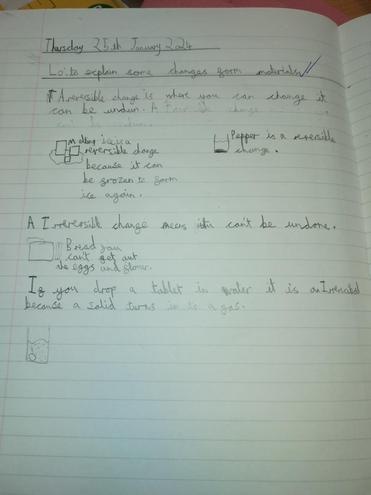 Thursday 25th January 2024
Lo: to explain some changes form materials
A reversible change is where you can change it
can be undun. A
Melting ice is a
reversible change
because it can
be frozen to form
ice again.
Pepper is a reversible
change.
A Irreversible change means it can't be undone.
Bread you
can't get out
the eggs and flour.
If you drop a tablet in water it is an
because a solid turns in to a gas.